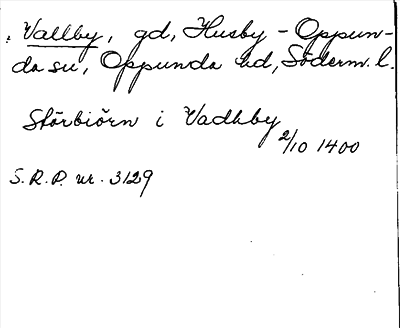 Vallby, gd, Husby-Oppun-
da sn, Oppunda hd, Söderm. l.
Störbiörn i Vadhby
2/10 1400
S.R.P. nr. 3129